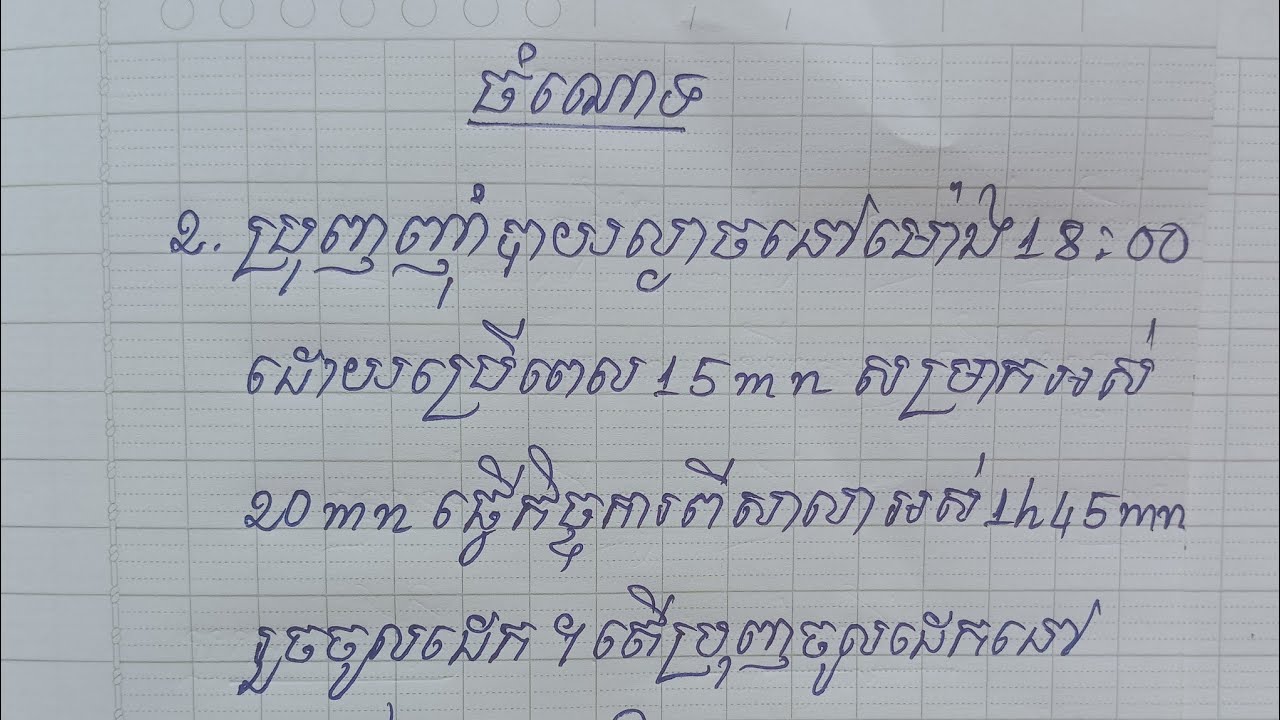 ចំណោទ
2. ប្រុញញ៉ាំបាយល្ងាចនៅម៉ោង18:00
ដោយប្រើពេល15mn សម្រាកអស់
20mn ធ្វើកិច្ចការពីសាលាអស់1h45mn
រួចចូលដេក។តើប្រុញចូលដេកនៅ